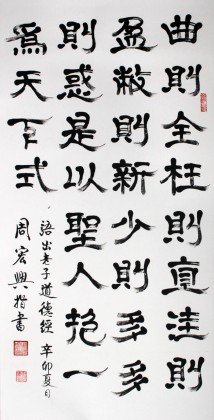 曲則全枉則直洼則
盈敝則新少則多多
則惑是以聖人抱一
爲天下式
語出老子道德經 辛卯夏日
周宏興指書